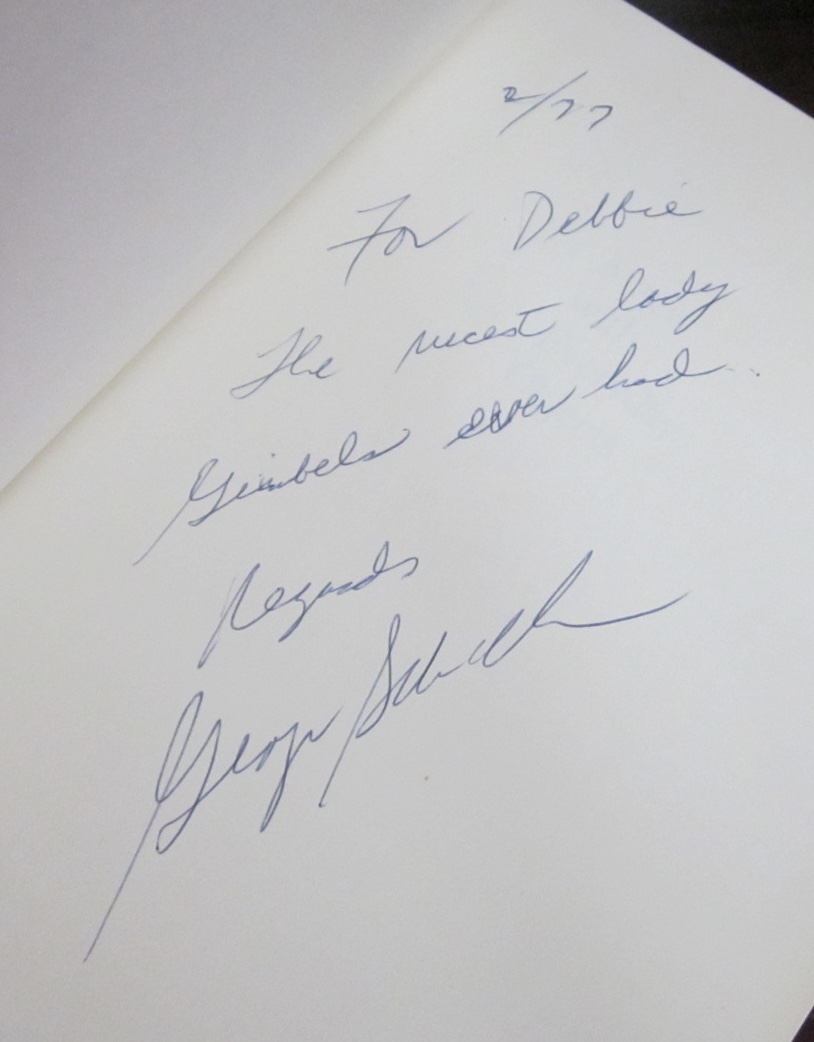 2/77
For Debbie
The nicest lady
Gimbels ever had.
Regards
George